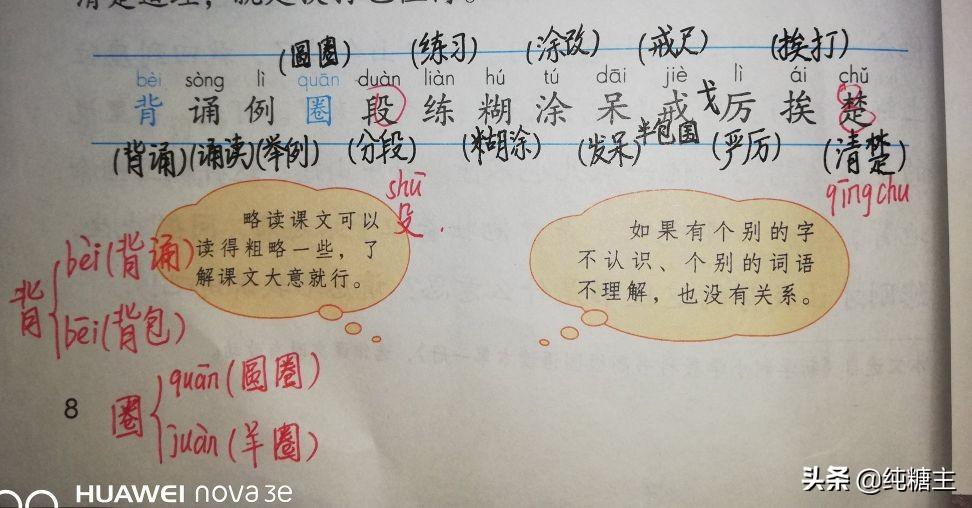 (圆圈) (练习) (涂改) (戒尺) (挨打)
bèi sòng lì quān duàn liàn hú tú dāi jiè lì ái chǔ
背 诵 例 圈 段 练 糊 涂 呆 戒 戈 厉 挨 楚
半包围
(背诵) (诵读) (举例) (分段) (糊涂) (发呆) (严厉) (清楚)
shū
殳
qīng chu
略读课文可以
读得粗略一些，了
解课文大意就行。
如果有个别的字
不认识、个别的词语
不理解，也没有关系。
背
bèi (背诵)
bēi (背包)
8
圈
quān (圆圈)
juàn (羊圈)
HUAWEI nova 3e
头条 @纯糖主